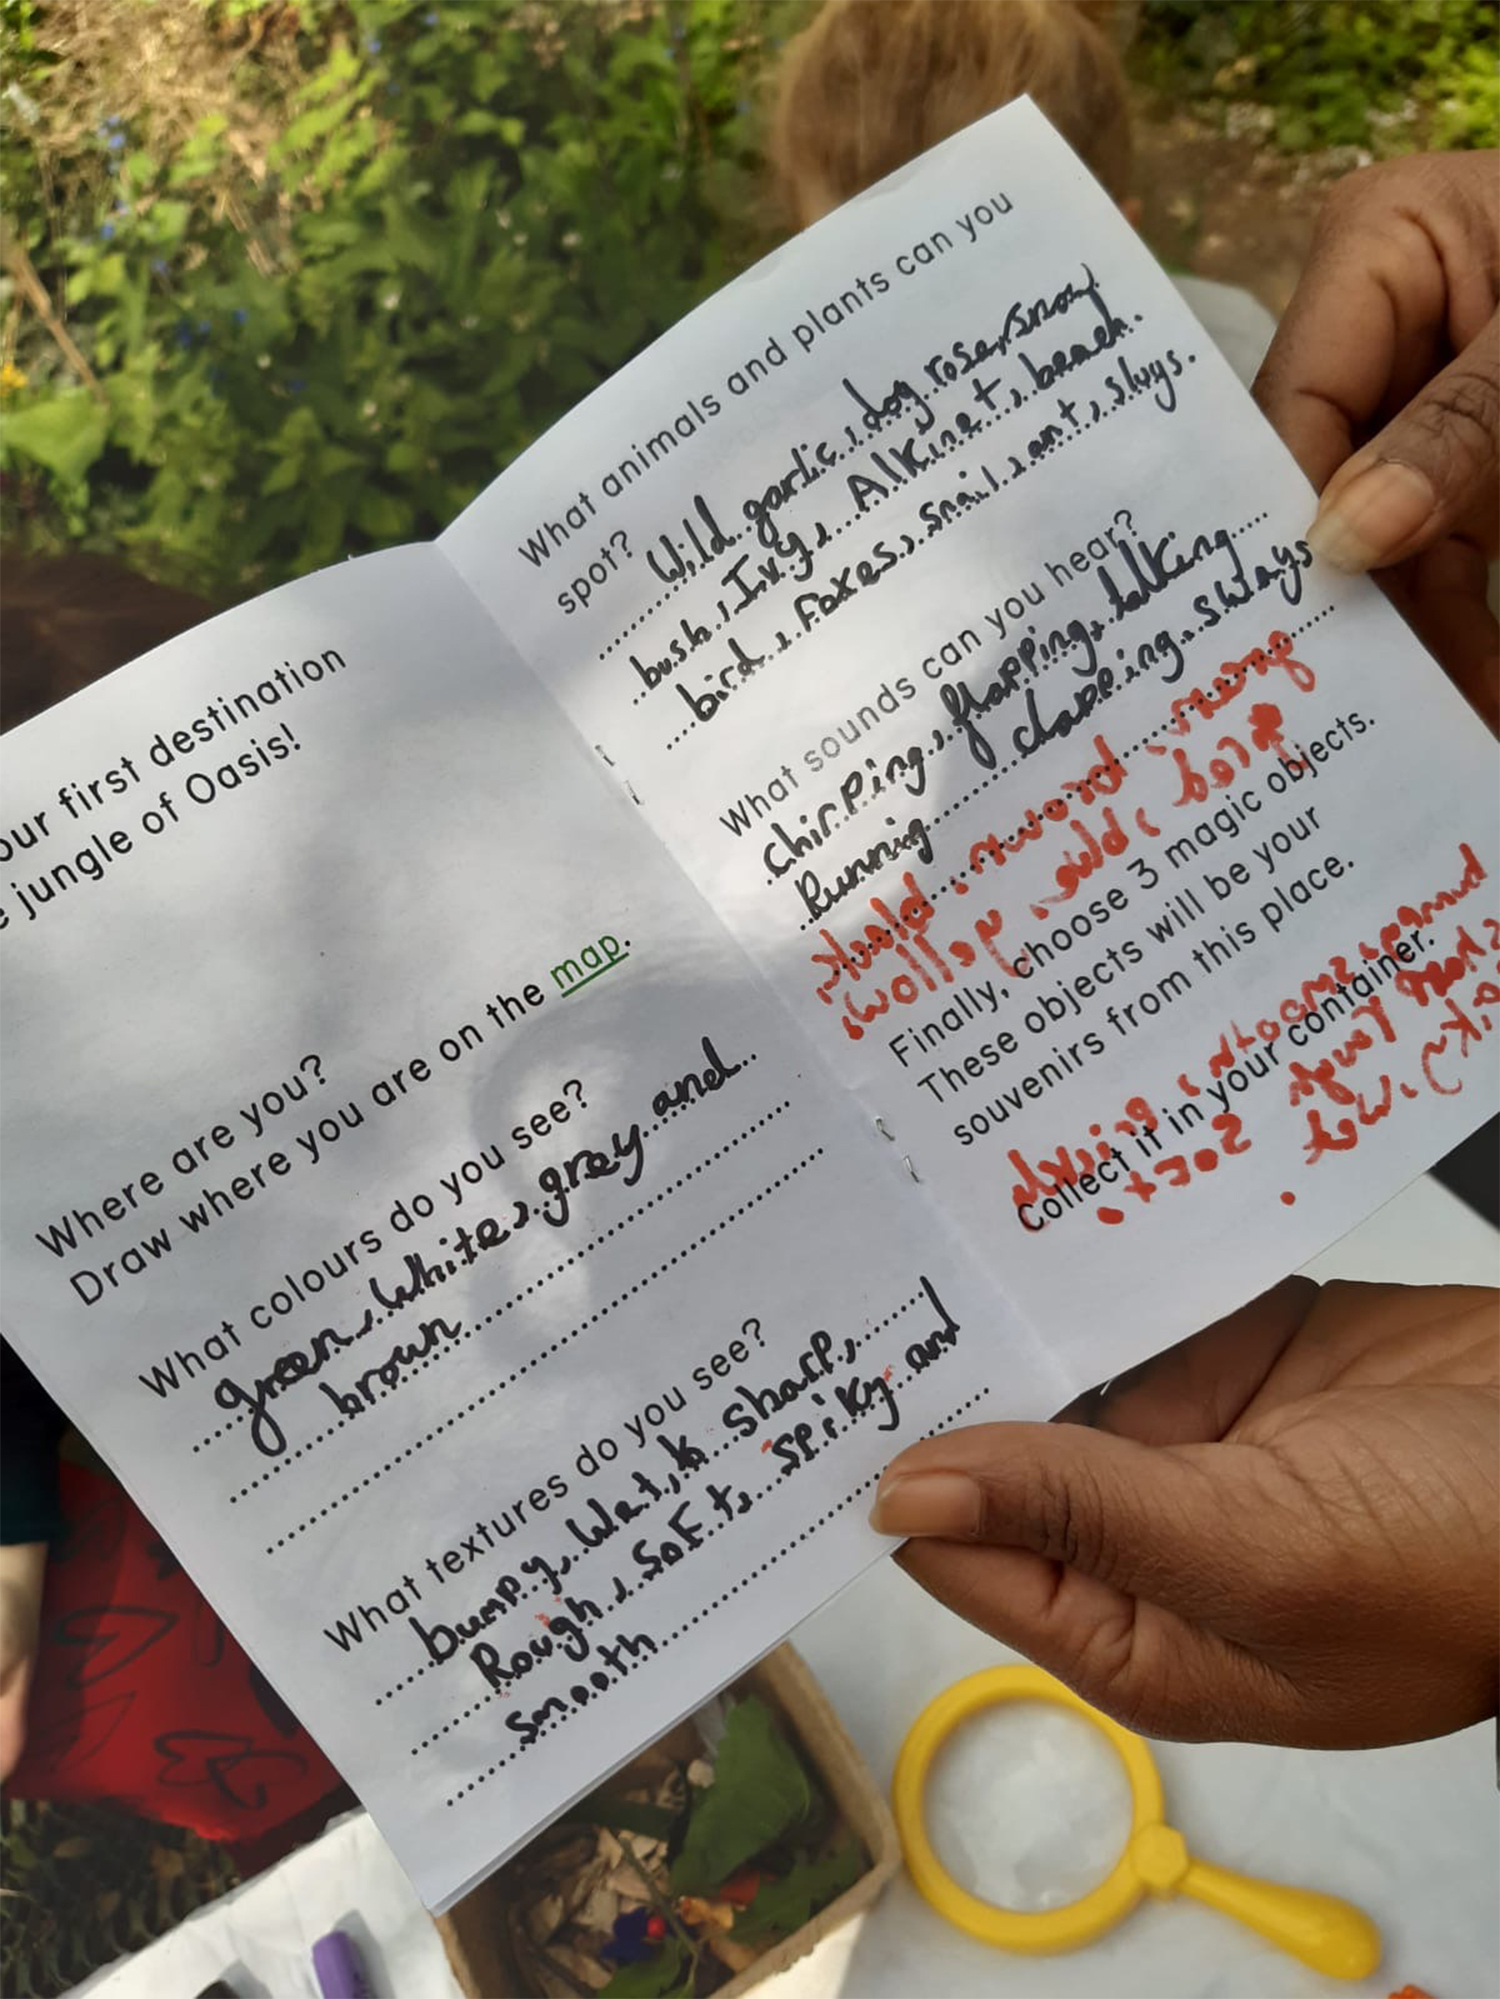 our first destination
jungle of Oasis!
Where are you?
Draw where you are on the map.
What colours do you see?
green, White, grey and
brown
What textures do you see?
bumpy, Wet, sharp,
Rough, Soft, Spiky and
smooth
What animals and plants can you
spot?
Wild garlic, dog rose, snow
bush, Ivy, Alkinet,
bird, Foxes, snail, ant, slugs.
What sounds can you hear?
chirping, flapping, talking
Running clapping
Finally, choose 3 magic objects.
These objects will be your
souvenirs from this place.
Collect it in your container.